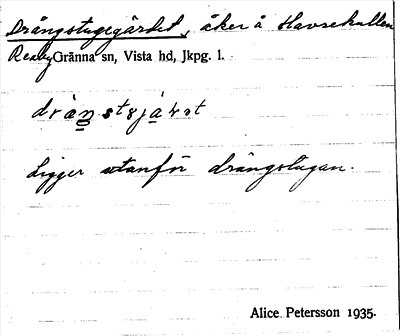 Drängstugegärdet, åker å Havsekullen
Reaby Gränna sn, Vista hd, Jkpg. l.
Ligger utanför drängstugan.
Alice Petersson 1935.